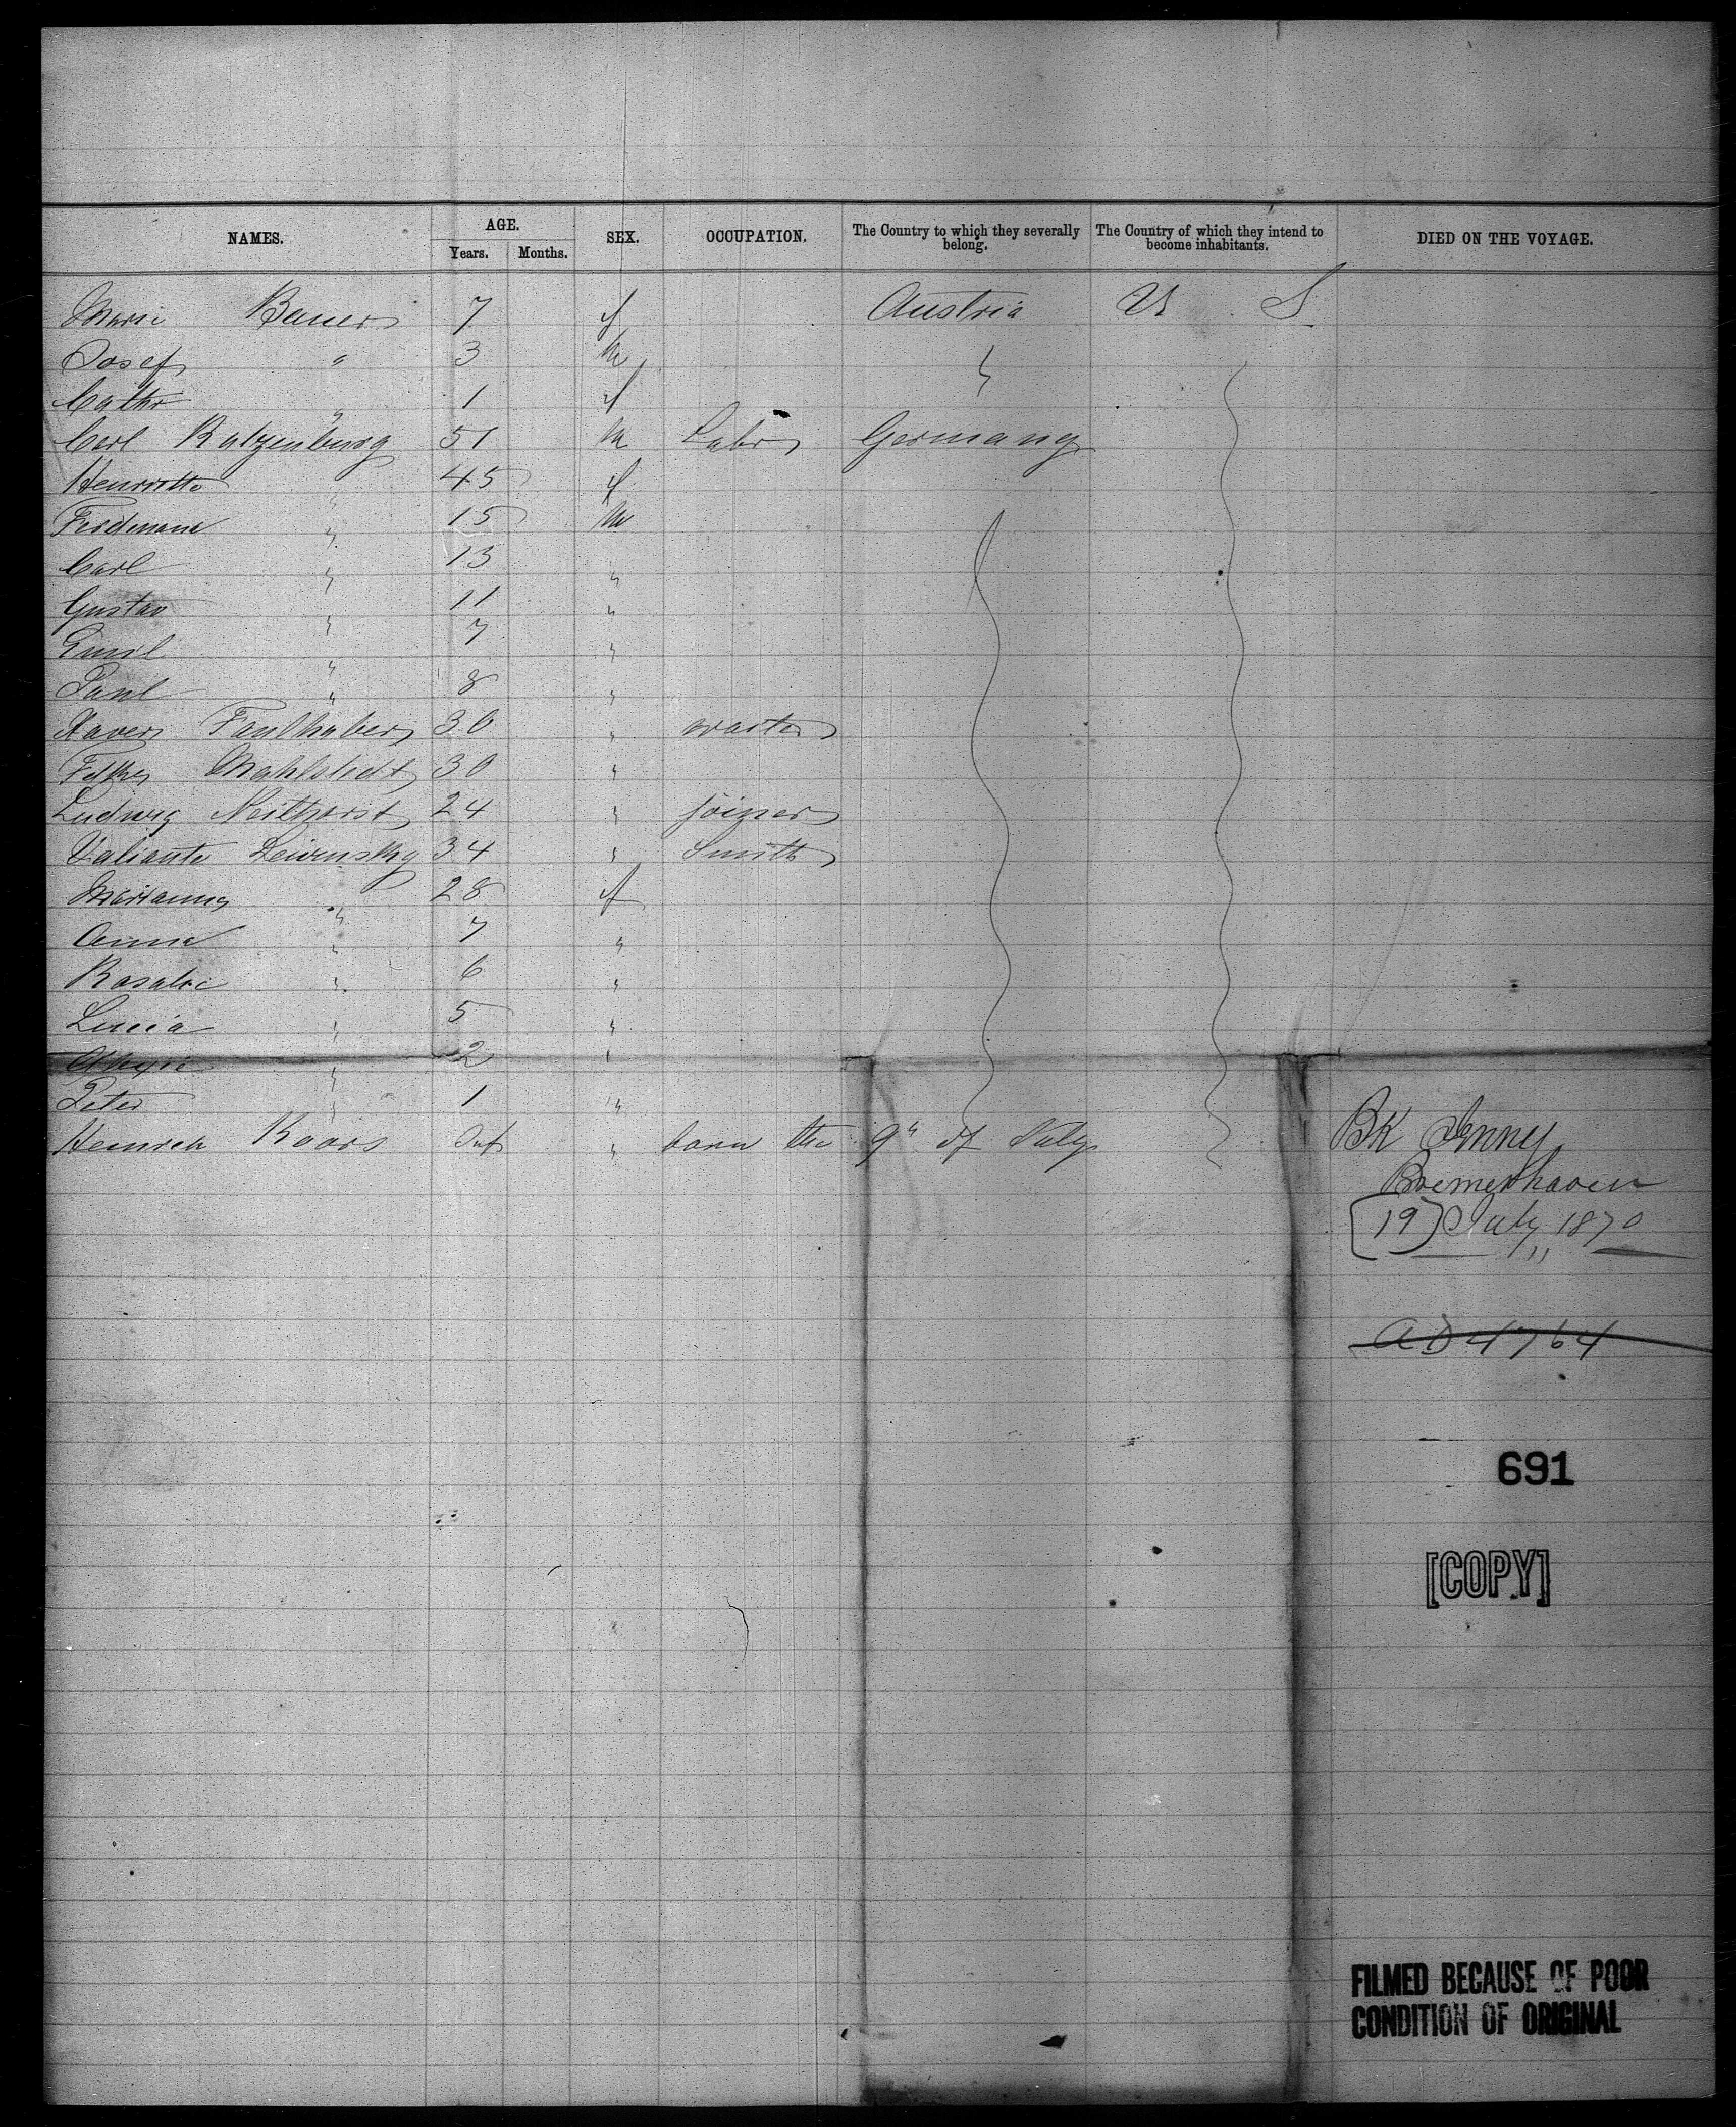 NAMES. AGE. SEX. OCCUPATION. The Country to which they severally belong. The Country of which they intend to become inhabitants. DIED ON THE VOYAGE.
Years. Months.
Marie Bauer 7 f Austria U S
Josef " 3 m
Cathr " 1 f
Carl Ratzenburg 51 m Labr Germany
Henriette " 45 f
Ferdinand " 15 m
Carl " 13 "
Gustav " 11 "
Emil " 7 "
Paul " 8 "
Xaver Faulhaber 30 "
Mahlstedt 30 "
Ludwig Neithorst 24 " joiner
Valiante Leivensky 34 " Smith
Marianna " 28 f
Anna " 7 "
Rosalie " 6 "
Lucia " 5 "
" 2 "
Peter " 1 "
Heinrich Koors Inf " born the 9" of July
BK Jenny
Bremerhaven
19 July 1870
AD 4764
691
[COPY]
FILMED BECAUSE OF POOR
CONDITION OF ORIGINAL